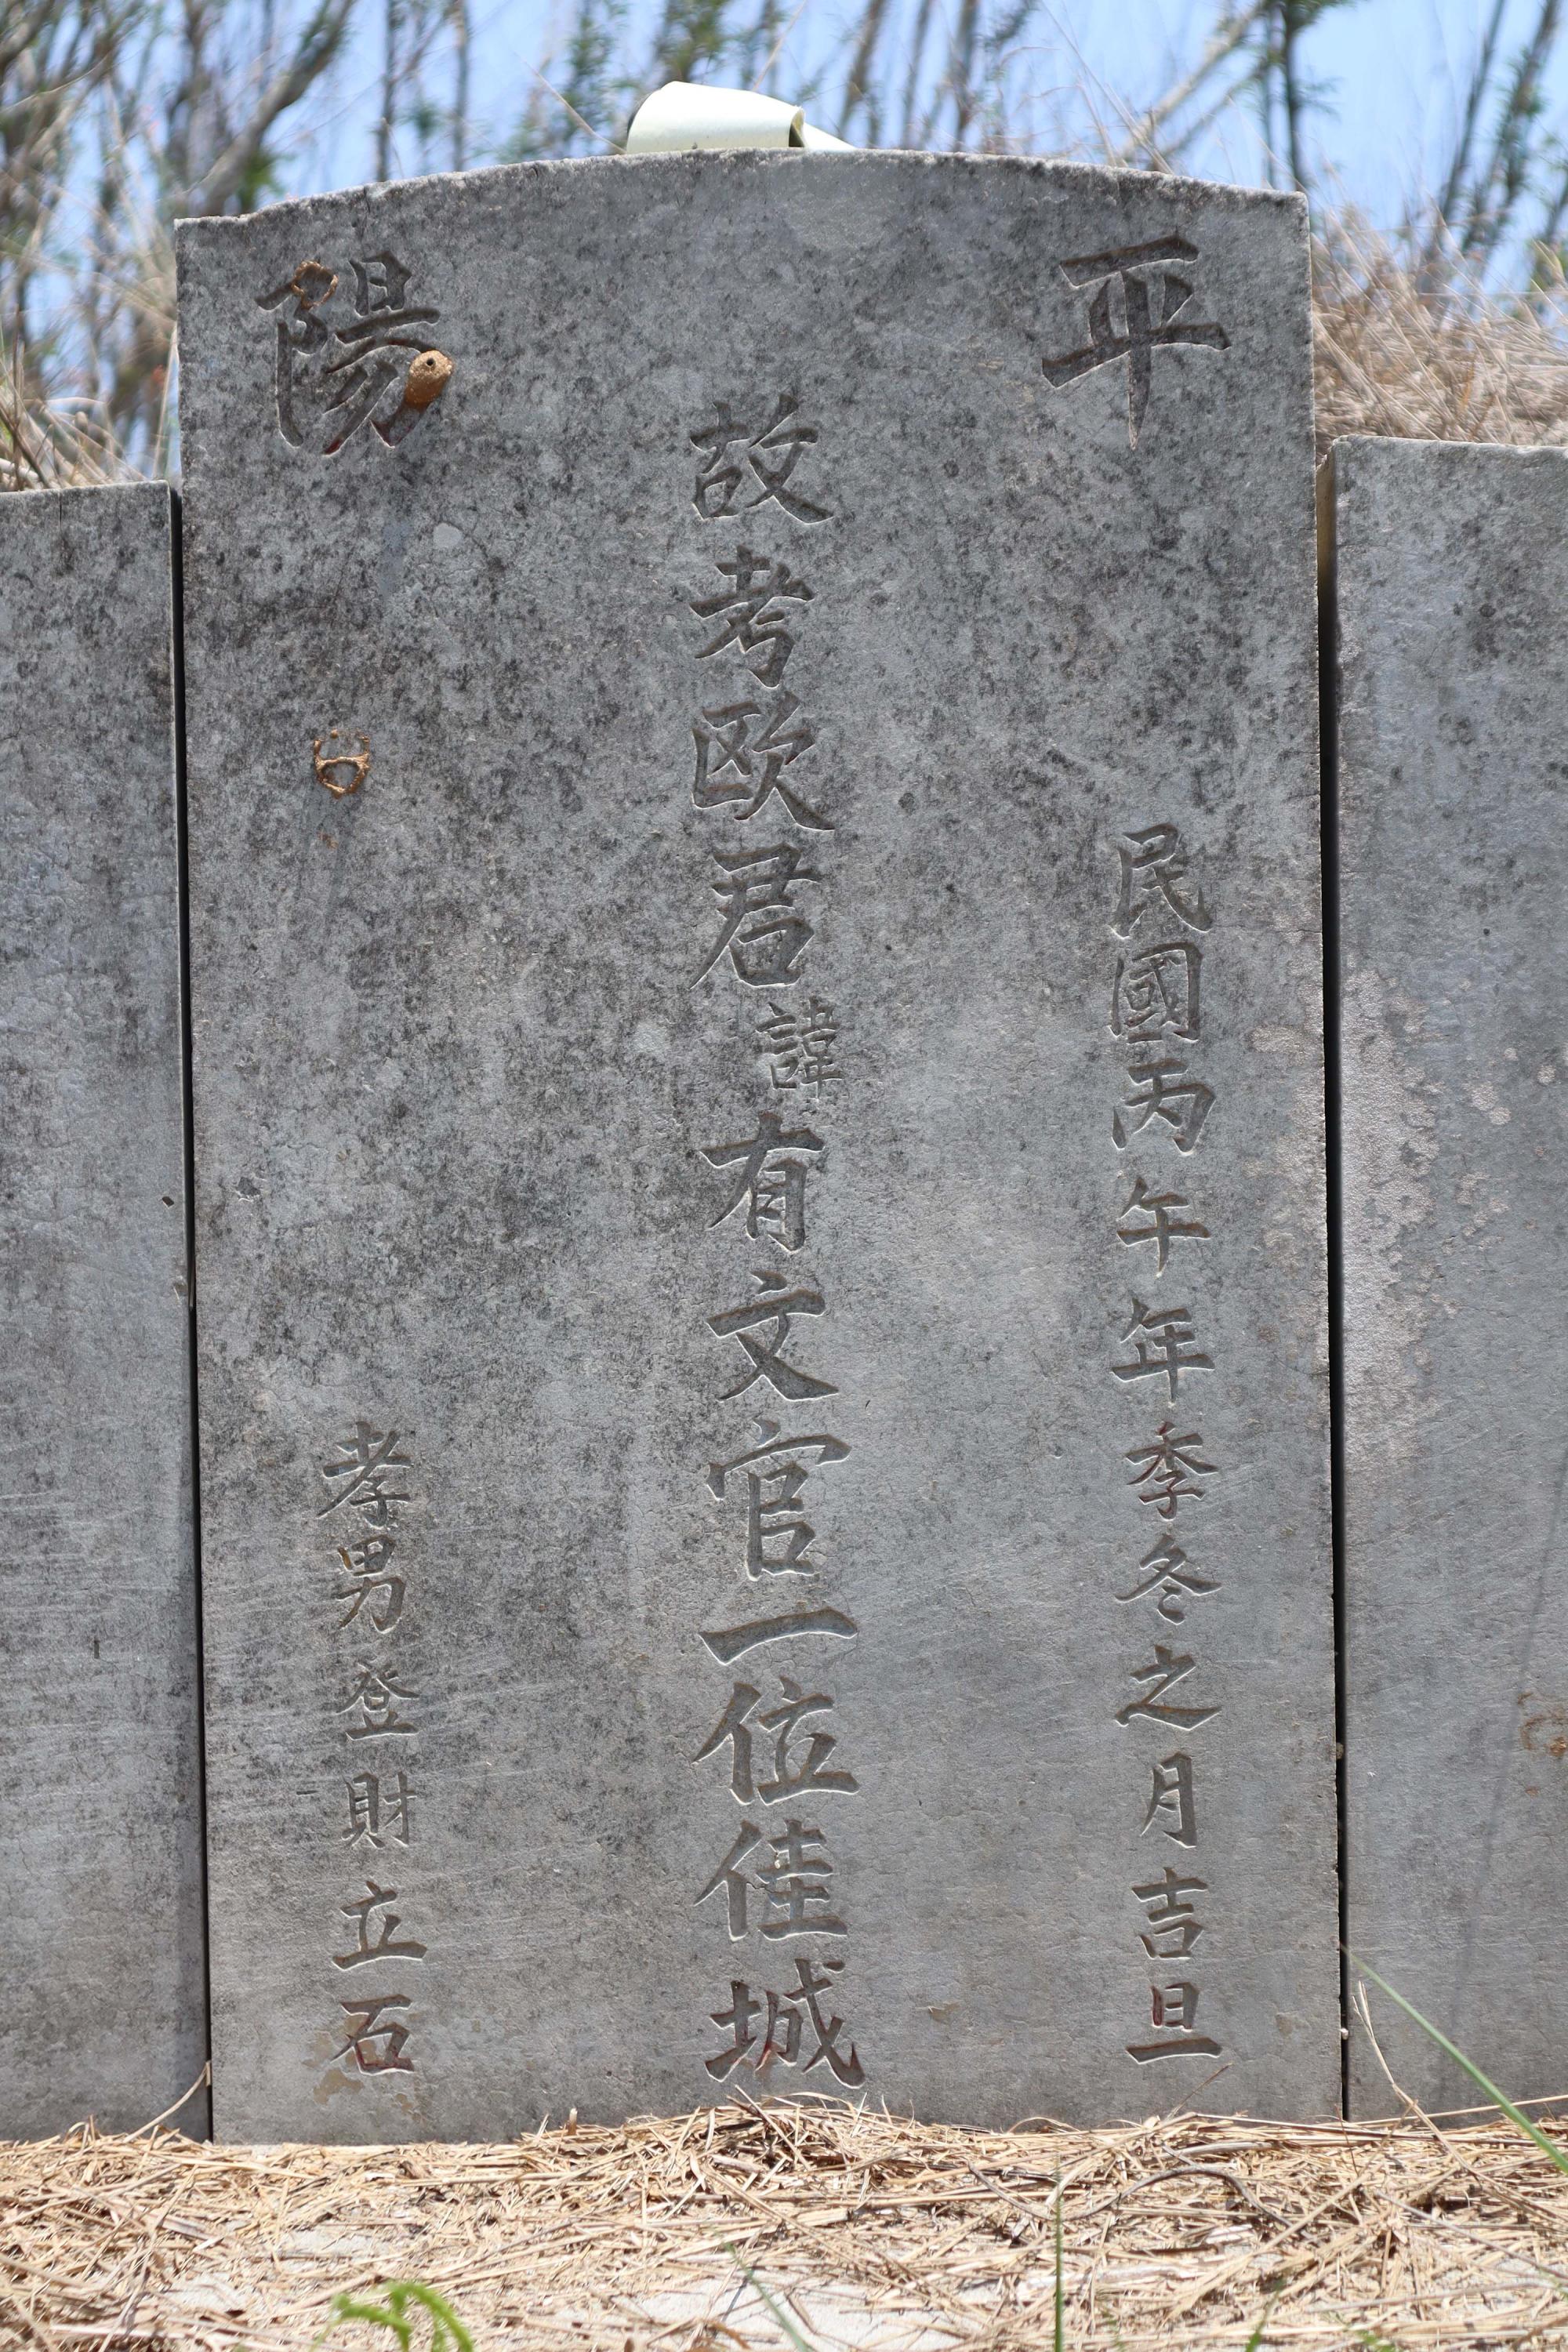 平陽
民國丙午年季冬之月吉旦
故考欧君諱有文官一位佳城
孝男登財立石